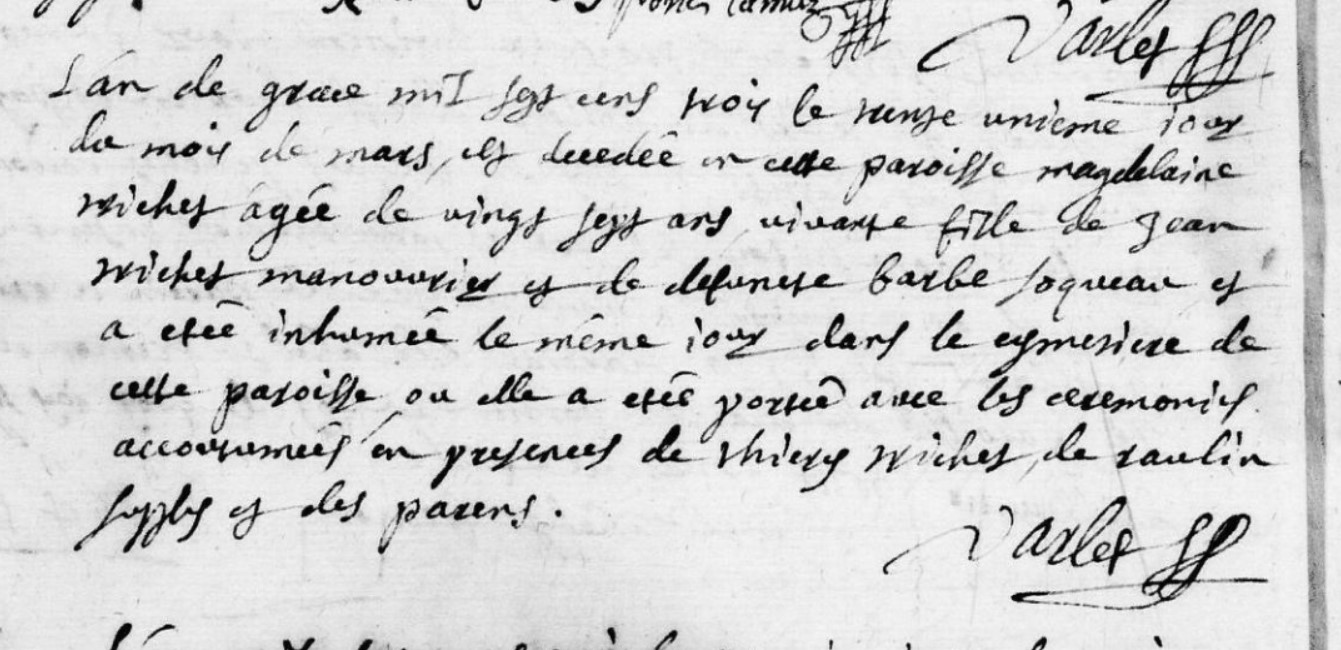 Varlet
L'an de grace mil sept cens trois le trente unieme jour
du mois de mars est decedeé en cette paroisse magdelaine
trichet ageé de vingt sept ans vivante fille de Jean
trichet manouvrier et de defuncte barbe soqueau et
a eteé inhumeé le même jour dans le cymetiere de
cette paroisse ou elle a eteé porteé avec les ceremonies
accoutumeés en presences de thiery trichet de raulin
et des parens.
Varlet